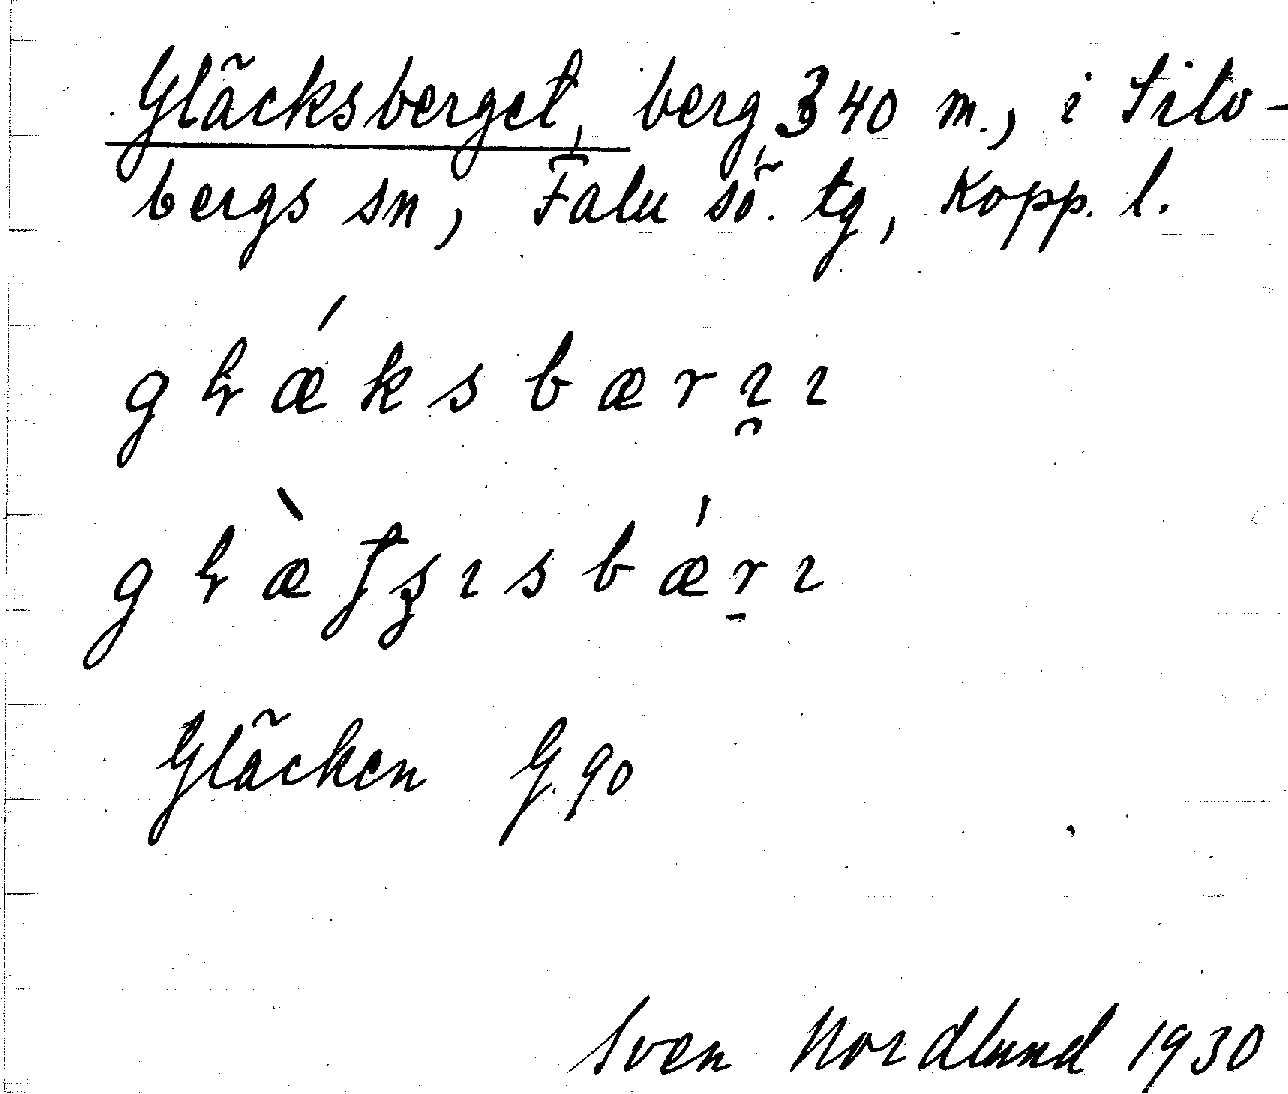 Gläcksberget, berg, 340 m., i Silv-
bergs sn, Falu sö. tg, Kopp. l.
gɫǽksbærı̯ı
gɫæ̀ʈʂısbǽr̠ı
Gläcken G. 90
Sven Nordlund 1930